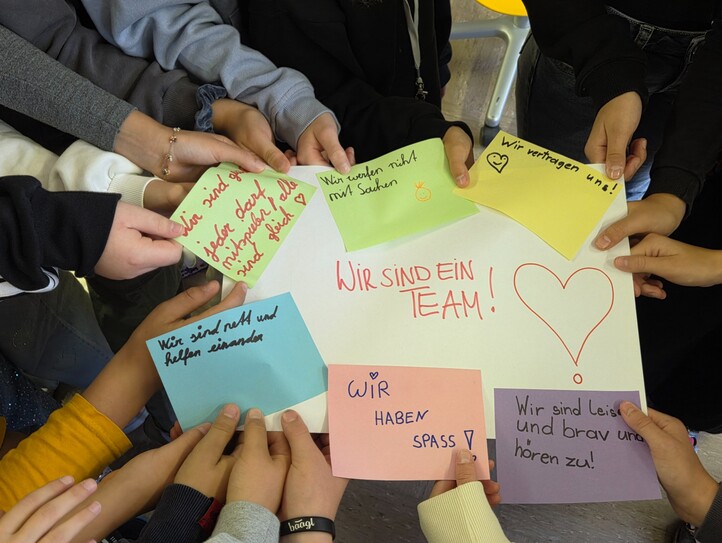 Wir sind
jeder darf
mitspielen, alle
sind gleich
Wir werfen nicht
mit Sachen
Wir vertragen uns!
WIR SIND EIN
TEAM!
Wir sind nett und
helfen einander
WIR
HABEN
SPASS!
Wir sind Leise
und brav und
hören zu!
haagl